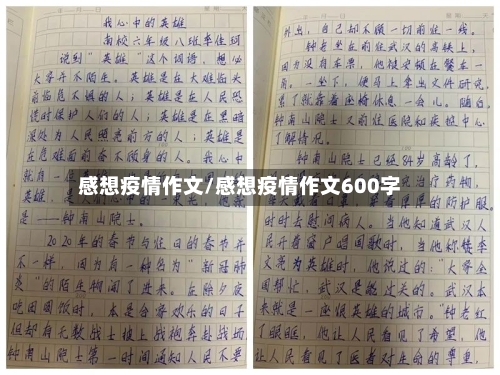 我心中的英雄
南校六年级八班李佳珂
说到"英雄"这个词语，想必
大家并不陌生。英雄是在大难临头
前临危不惧的人；英雄是在人民恐
慌时保护人们的人；英雄是在黑暗
深处为人民照亮前方的人；英雄是
在危难面前奋不顾身的人。我心中
是——钟南山院士。
2020年的春节与往日的春节并
不一样，因为有一种名为"新冠肺
炎"的陌生物闯了进来。在除夕夜
吃团圆饭时，本是合家欢乐的日子
但却有无数战士披上战袍奔赴战场
钟南山院士第一时间通知人民不要
外出，自己却不顾一切前往一线。
钟老坐在前往武汉的高铁上，
因为没有车票，他被安顿在餐车一
角。一坐下，便马上拿出文件研究，
累了就靠着座椅休息一会儿。随后，
钟南山院士又前往医院和疾控中心
了解情况。
钟南山院士已经84岁高龄了，
时时去慰问病人。当他知道武汉人
民开着窗户唱国歌时，当他称赞李
文亮为英雄时，他说过的："大家全
国帮忙，武汉是能过关的。武汉本
来就是一座很英雄的城市。"钟老红
了眼眶，他让人民看见了希望，他
让人民看见了医者对生命的尊重，
感想疫情作文/感想疫情作文600字